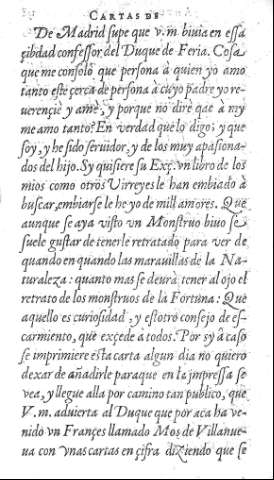 CARTAS DE
De Madrid supe que v.m biuia en essa
çibdad confessor del Duque de Feria. Cosa
que me consolò que persona à quien yo amo
tanto estè çerca de persona à cuyo padre yo re-
uerençie y ame, y porque no dirè que à my
me amo tanto? En verdad que lo digo; y que
soy, y he sido seruidor, y de los muy apasiona-
dos del hijo. Sy quisiere su Exç. vn libro de los
mios como otros Virreyes le han embiado à
buscar, embiarse le he yo de mill amores. Que
aunque se aya visto vn Monstruo biuo se
suele gustar de tenerle retratado para ver de
quando en quando las marauillas de la Na-
turaleza: quanto mas se deurà tener al ojo el
retrato de los monstruos de la Fortuna: Que
aquello es curiosidad, y estotro consejo de es-
carmiento, que exçede à todos. Por sy à caso
se imprimiere esta carta algun dia no quiero
dexar de añadirle paraque en la impressa se
vea, y llegue alla por camino tan publico, que
V.m. aduierta al Duque que por acà ha ve-
nido vn Françes llamado Mos de Villanue-
ua con vnas cartas en çifra diziendo que se